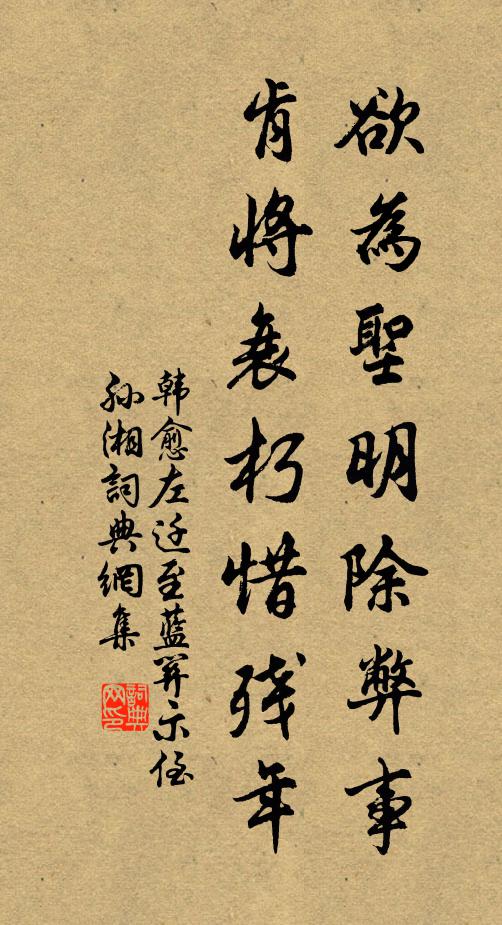 欲為聖明除弊事
肯將衰朽惜残年
韩愈左迁至蓝関示侄
孙湘詞典網集
詞典网印